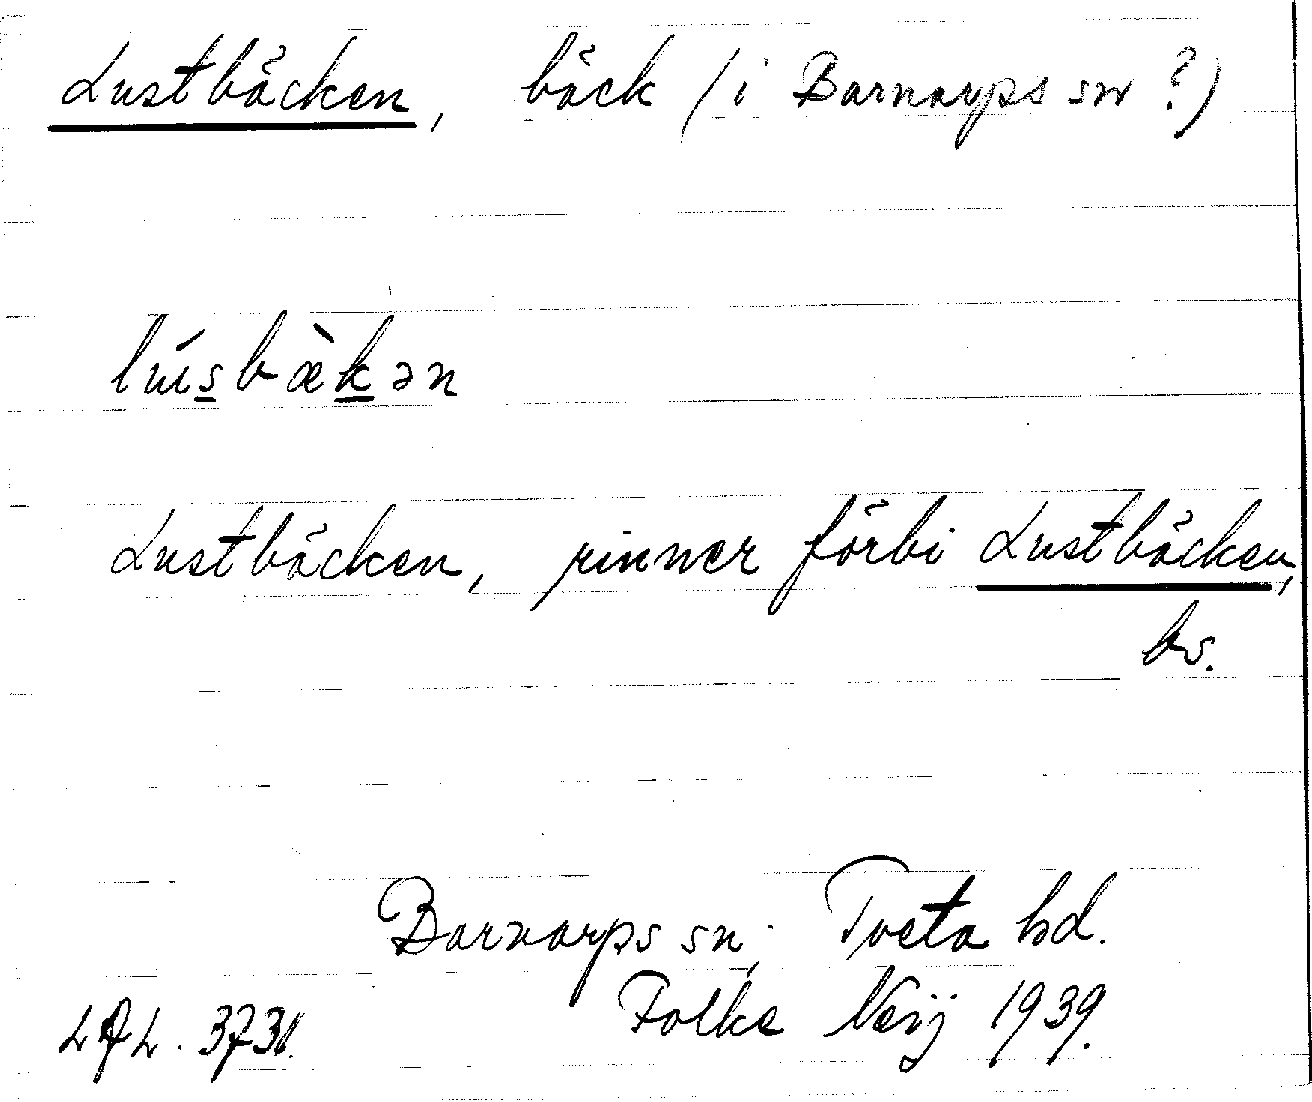 Lustbäcken, bäck (i Barnarps sn?)
lúsbæ̀kən
Lustbäcken, rinner förbi Lustbäcken,
bs.
Barnarps sn; Tveta hd.
Folke Neij 1939.
LAL. 3731.